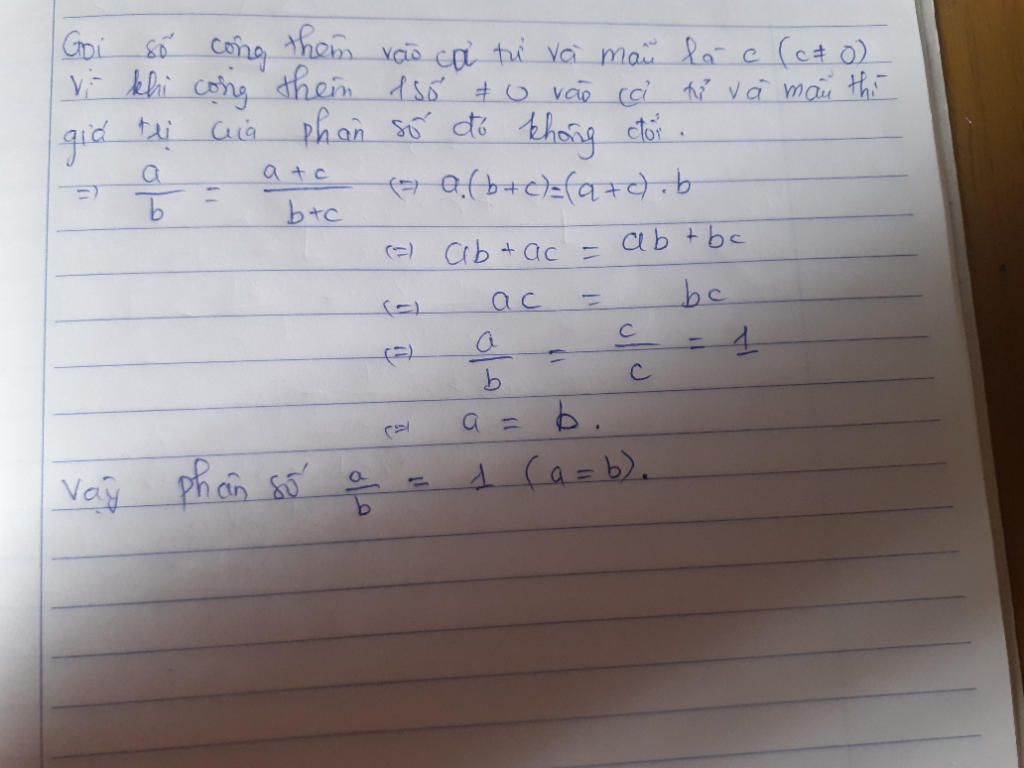 Gọi số cộng thêm vào cả tử và mẫu là c (c ≠ 0)
Vì khi cộng thêm 1 số ≠ 0 vào cả tử và mẫu thì
giá trị của phân số đó không đổi.
=> a/b = (a+c)/(b+c) <=> a.(b+c)=(a+c).b
<=> ab+ac = ab+bc
<=> ac = bc
<=> a/b = c/c = 1
<=> a = b.
Vậy phân số a/b = 1 (a=b).